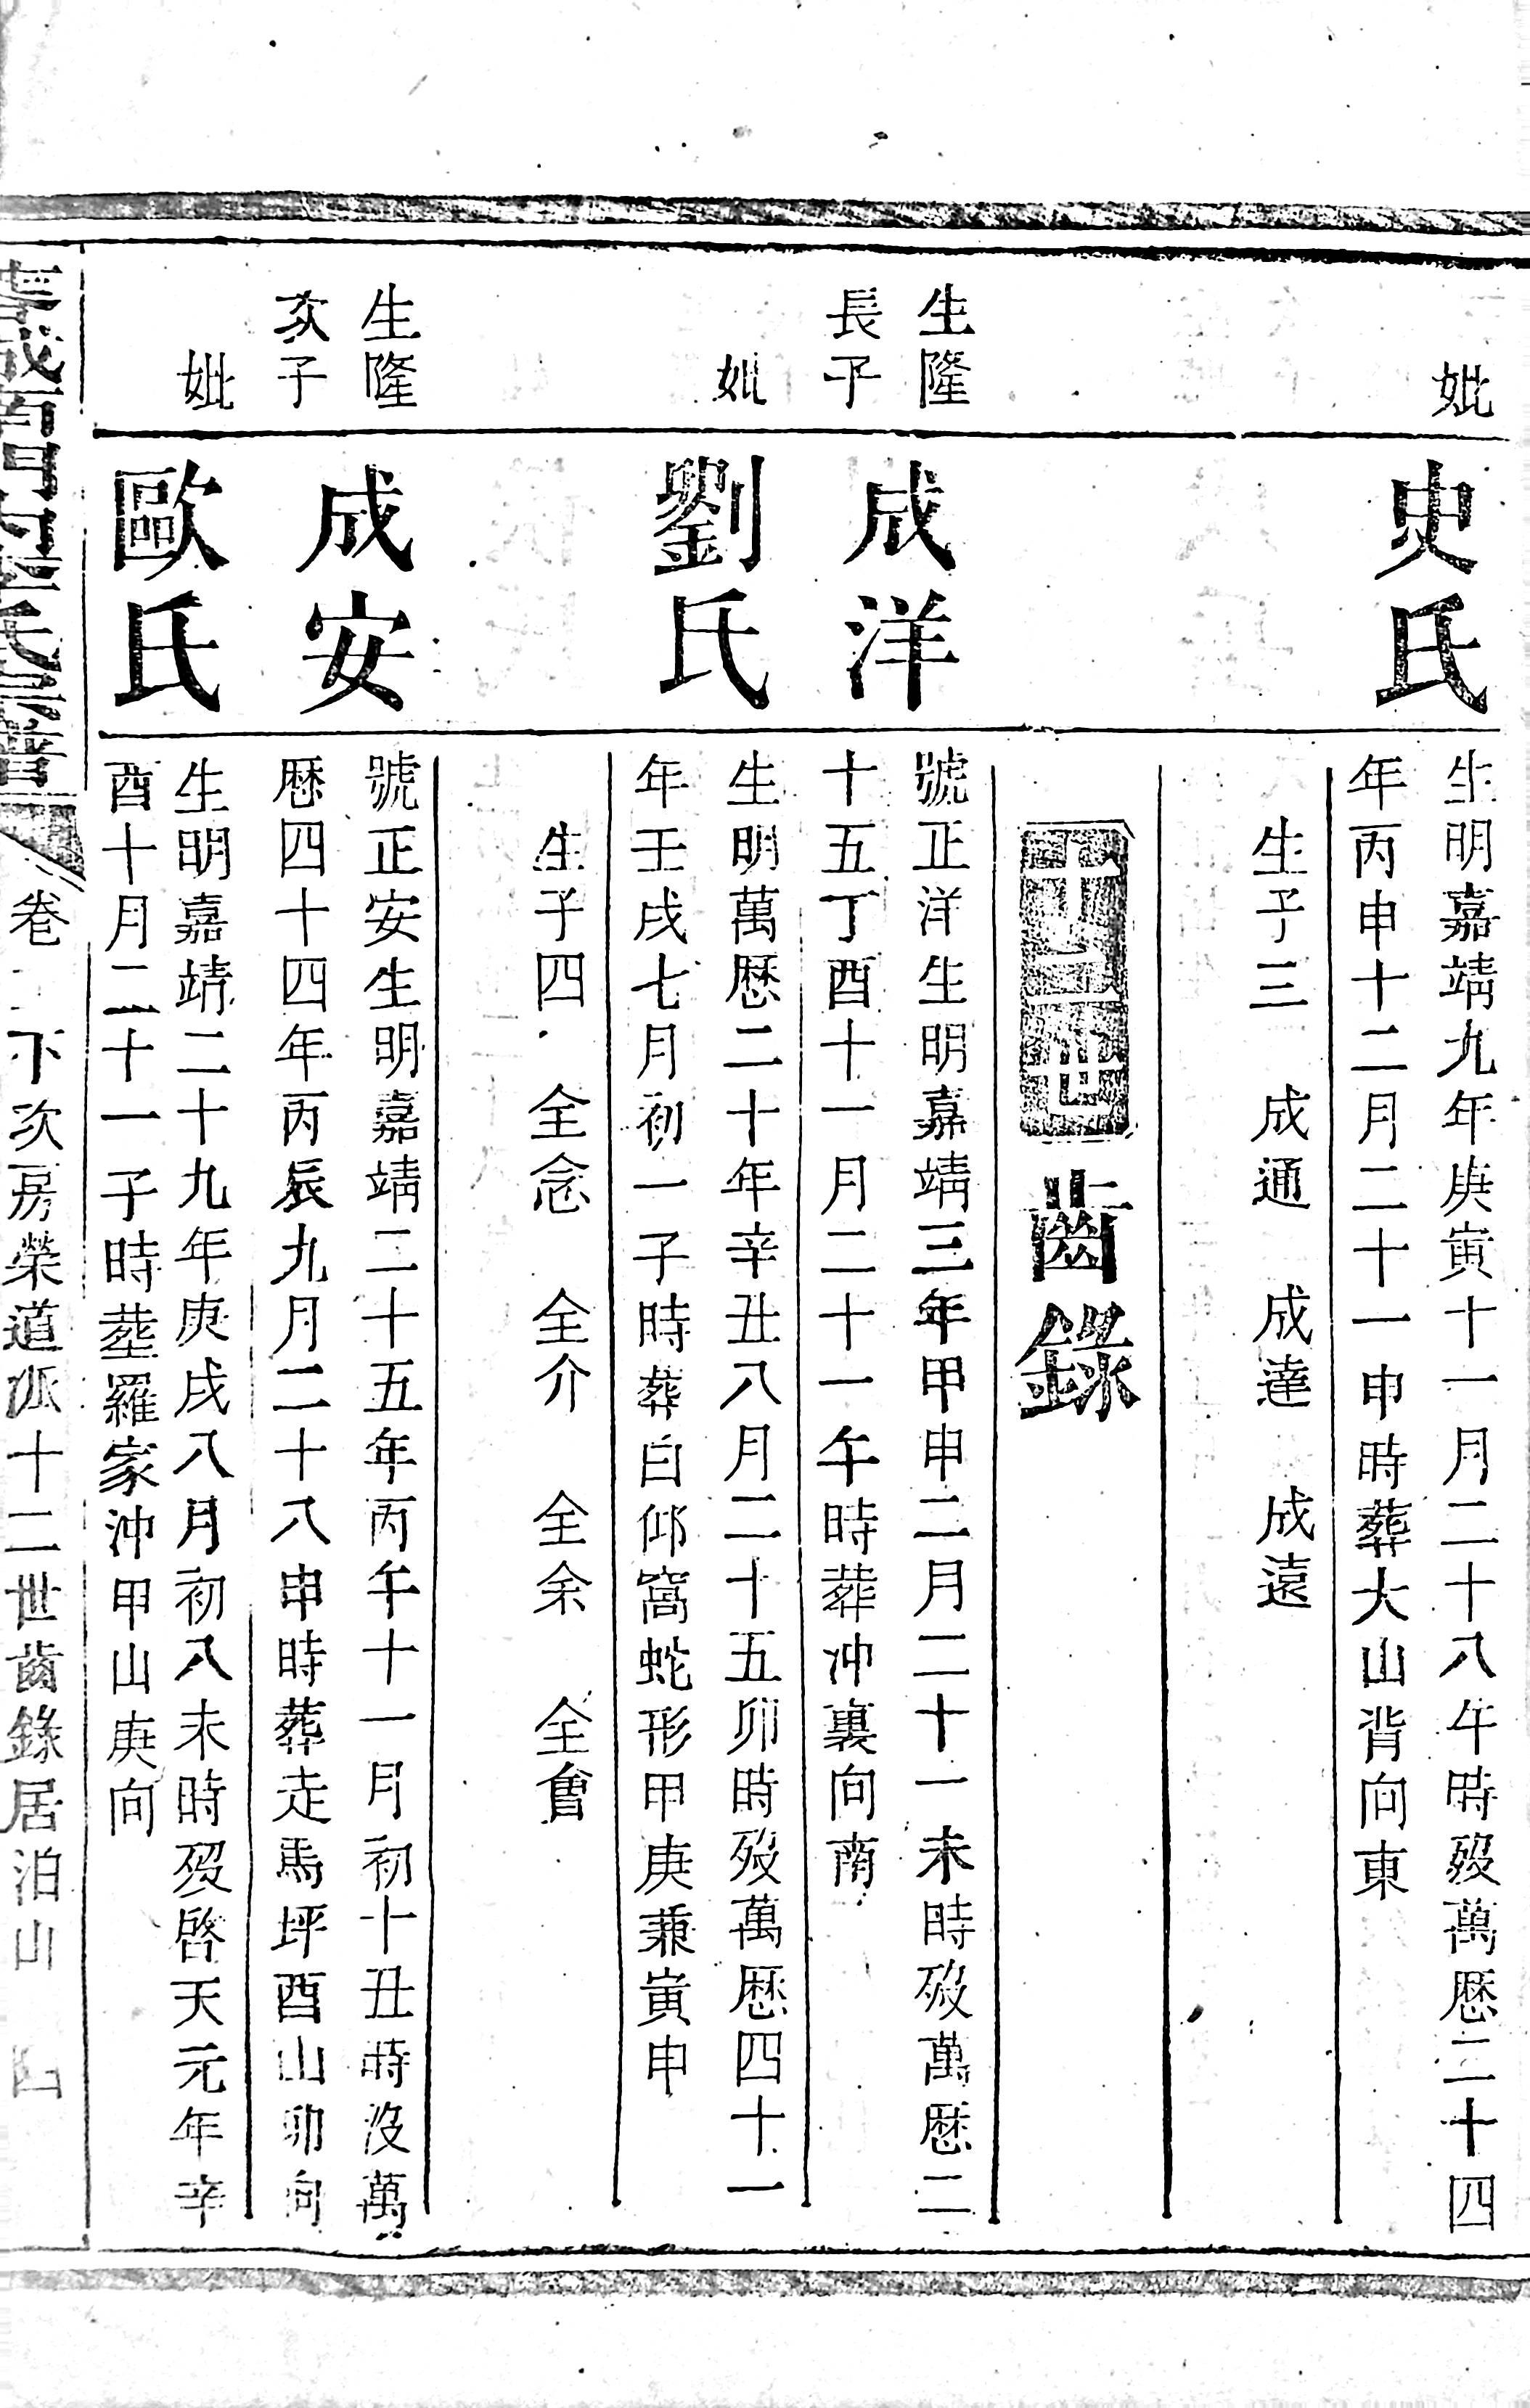 妣
史氏
生明嘉靖九年庚寅十一月二十八午時歿萬厯二十四
年丙申十二月二十一申時葬大山背向東
生子三 成通 成達 成遠
十二世齒錄
生隆
長子
成洋
號正洋生明嘉靖三年甲申二月二十一未時歿萬厯二
十五丁酉十一月二十一午時葬冲裏向南
妣
劉氏
生明萬厯二十年辛丑八月二十五卯時歿萬厯四十一
年壬戌七月初一子時葬白邜窩蛇形甲庚兼寅申
生子四 全念 全介 全余 全會
生隆
次子
成安
號正安生明嘉靖二十五年丙午十一月初十丑時沒萬
厯四十四年丙辰九月二十八申時葬走馬坪酉山卯向
妣
歐氏
生明嘉靖二十九年庚戌八月初八未時歿啓天元年辛
酉十月二十一子時塟羅家沖甲山庚向
城南門內李氏宗譜
卷 下次房榮道派十二世齒錄居泊山 四